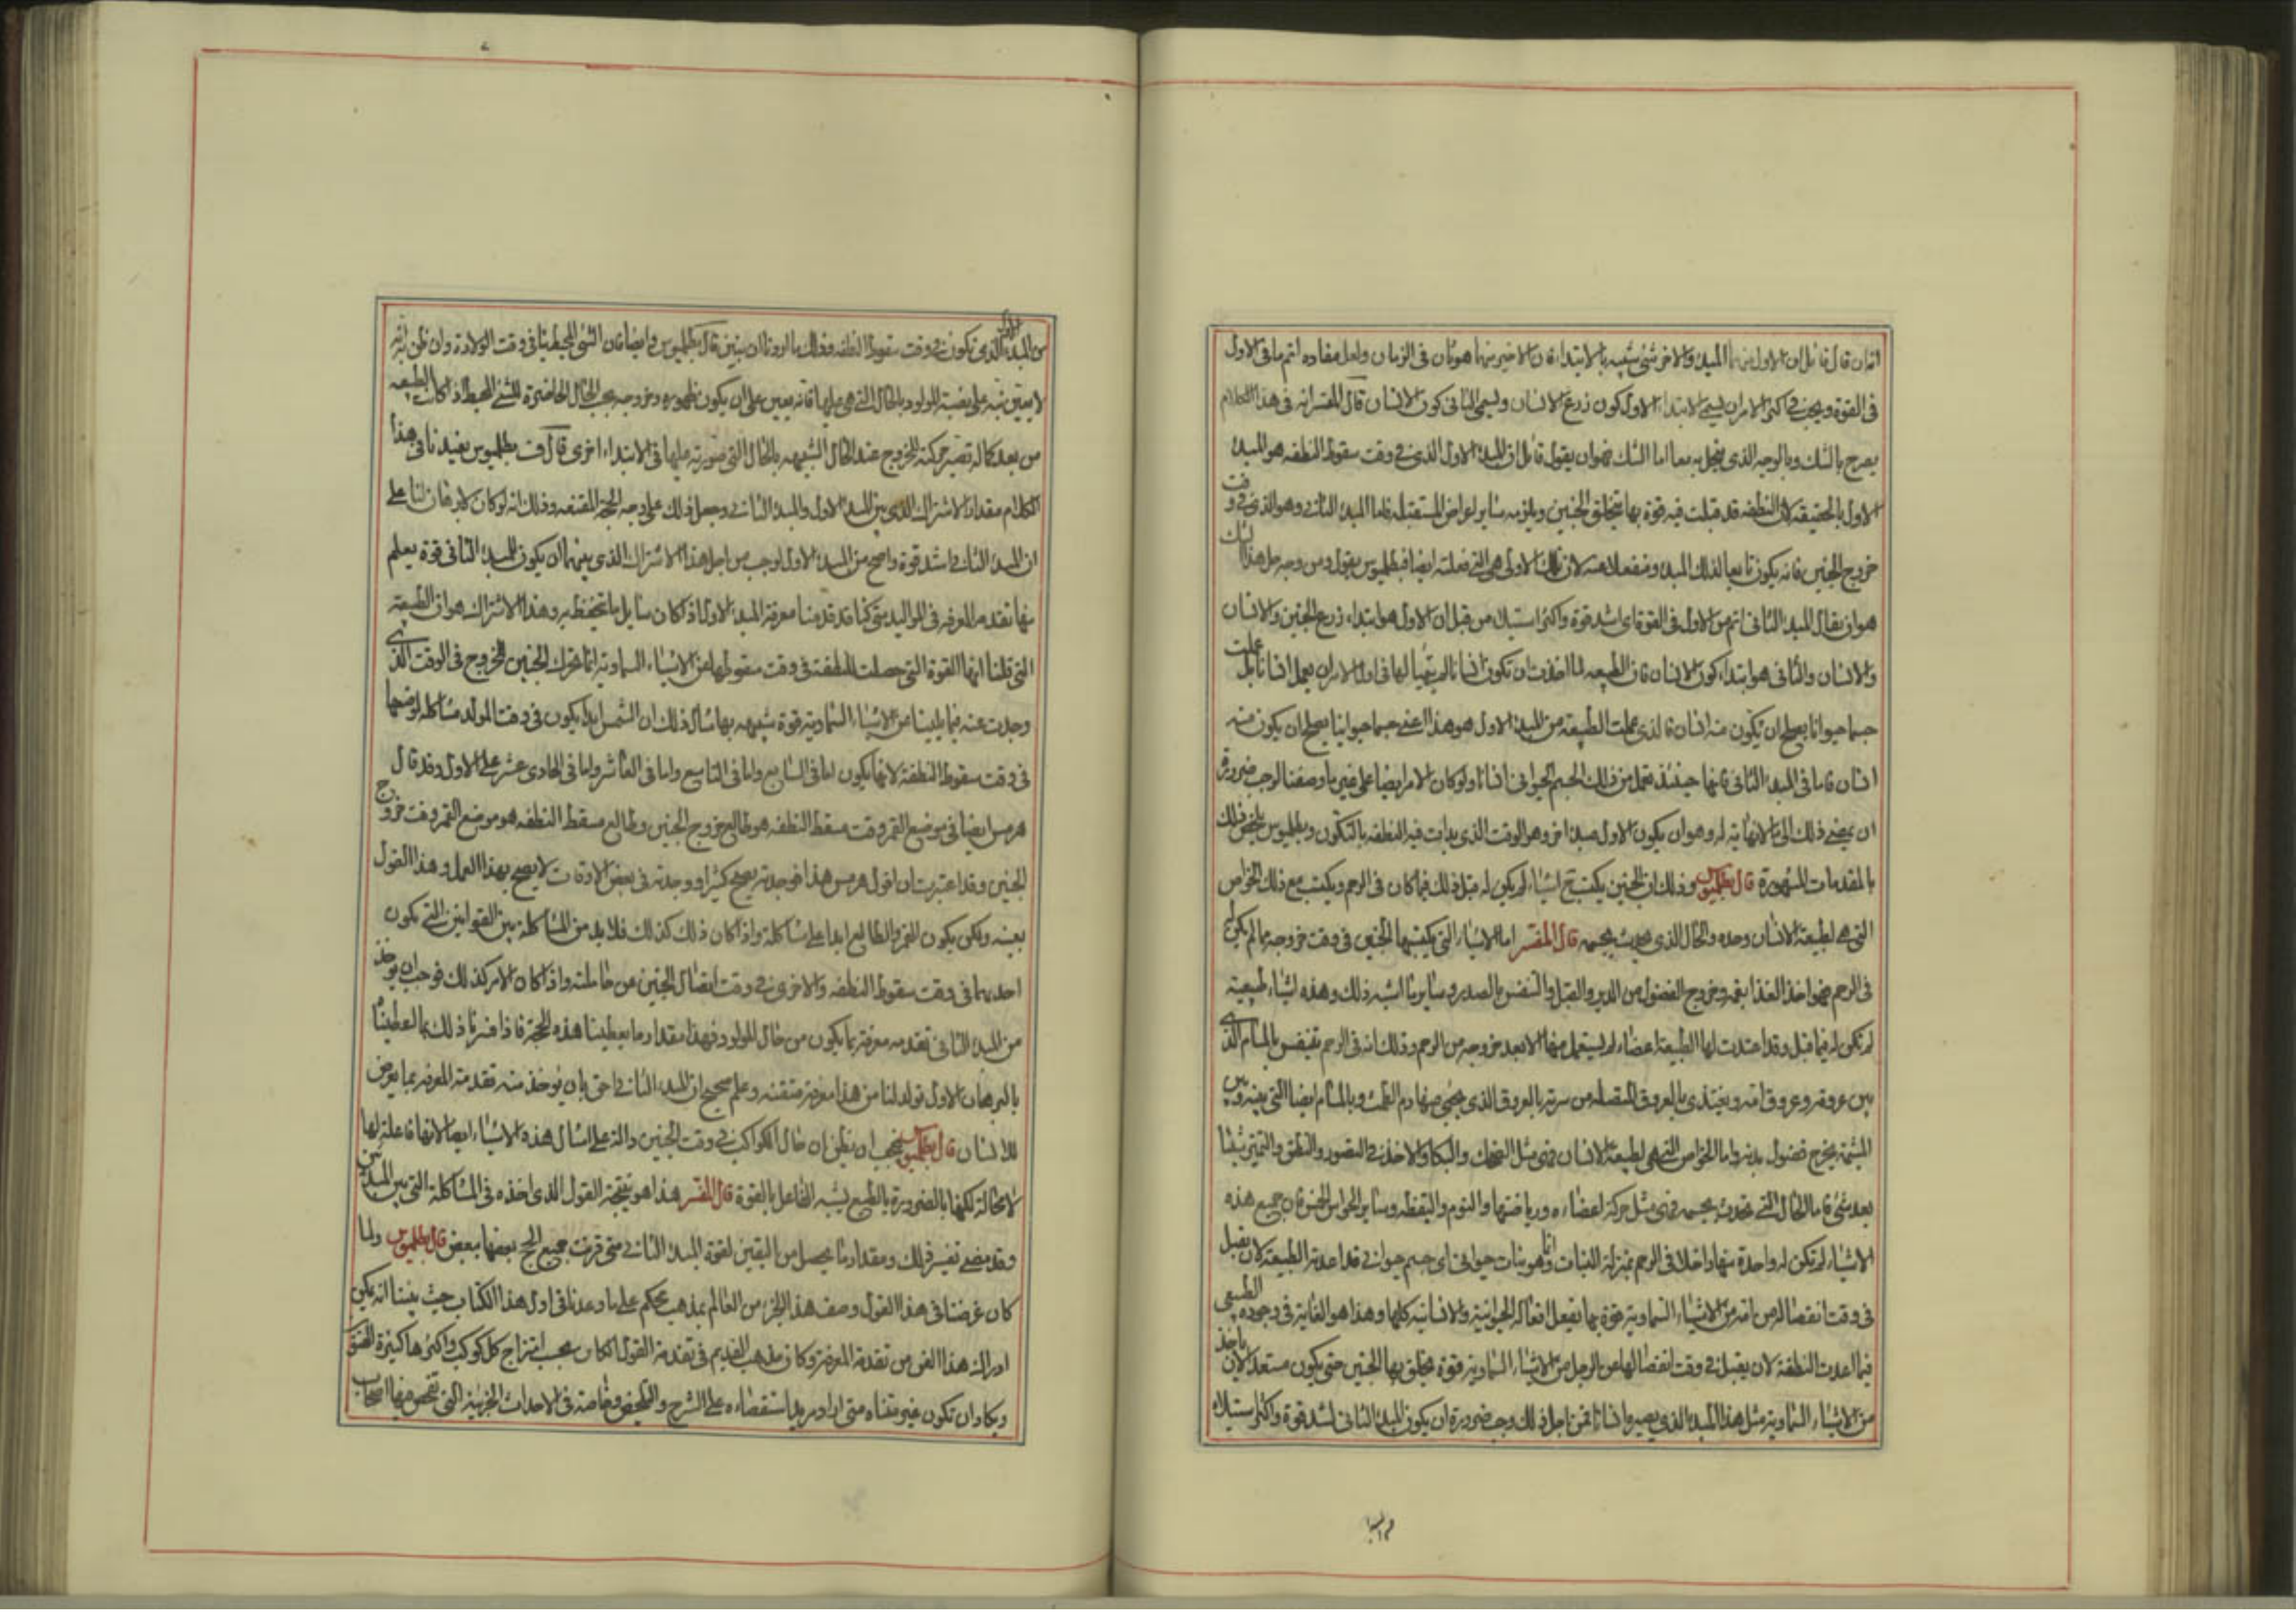 انسان قال قائل ان الاول منهما المبدء والاخر شئ شبيه بالابتداء فان الاخير منهما هو ثان فى الزمان ولعل مقاده اتم مافى الاول
فى القوة ويجب فى اكثر الامر ان يسمى الابتداء الاول كون زرع الانسان ويسمى الثانى كون الانسان قال المفسر انه فى هذا الكلام
يصرح بالشك وبالوجه الذى ينحل به معا اما الشك فهو ان يقول قائل ان المبدء الاول الذى فى وقت سقوط النطفه هو المبدء
الاول بالحقيقه لان النطفه قد قبلت فيه قوة بها يتخلق الجنين ويلزمه سائر لعراض المستقبله فاما المبدء الثانى وهو الذى فى وقت
خروج الجنين فانه يكون تابعا لذلك المبدء ومنفعلا عنه لان تلك الاولى هى التى فعلته ايضا فبطلميوس يقول ومن وجه حل هذا الشك
هو ان يقال المبدء الثانى اتم من الاول فى القوة اى اشد قوة واكثر استيلاء من قبل ان الاول هو ابتداء زرع الجنين والانسان
والانسان والثانى هو ابتداء كون الانسان فان الطبيعه لما اخذت ان تكون انسانا لم يتهيأ لها فى اول الامر ان يعمل انسانا بل عملت
جسما حيوانا يصلح ان يكون منه انسان فالذى عملت الطبيعه من المبدء الاول هو هذا اعنى جسما حيوانيا يصلح ان يكون منه
انسان فاما فى المبدء الثانى فانها حينئذ تعمل من ذلك الجسم الحيوانى انسانا ولو كان الامر ايضا على غير ما وصفنا لوجب ضرورة
ان يمضى ذلك الى ما لا نهاية له وهو ان يكون الاول مبدءا اخر وهو الوقت الذى بدات فيه النطفه بالتكون وبطلميوس يلخص ذلك
بالمقدمات المشهورة قال بطلميوس وذلك ان الجنين يكتسب اشياء لم يكن له قبل ذلك فيما كان فى الرحم ويكتسب مع ذلك الخواص
التى هى لطبيعة الانسان وحده والحال الذى يحدث بجسمه قال المفسر اما الاشياء التى يكتسبها الجنين فى وقت خروجه مما لم يكن له
فى الرحم فهو اخذ الغذا بفمه وخروج الفضول من الدبر والقبل والتنفس بالصدر وسائر ما اشبه ذلك وهذه اشياء طبيعية
لم تكن له فيما قبل وقد اعتدت لها الطبيعة اعضاء لم يستعمل منها الا بعد خروجه من الرحم وذلك انه فى الرحم يتنفس بالمسام الذى
بين عروقه وعروق امه ويغتذى بالعروق المتصله من سرته بالعروق الذى يجئ منها دم الطمث وبالمسام ايضا التى بينه وبين
المشيمة يخرج فضول بدنه واما الخواص التى هى لطبيعة الانسان فهى مثل الضحك والبكا والاخذ فى التصور والنطق والتميز شيئا
بعد شئ فاما الحال التى تحدث بجسمه فهى مثل حركة اعضاءه ورياضتها والنوم واليقظه وسائر الحواس الخمس فان جميع هذه
الاشياء لم تكن له واحدة منها داخلا فى الرحم بمنزلة النبات انما وهو نبات حيوانى اى جسم حيوانى قد اعدته الطبيعة لان يقبل
فى وقت انفصاله من امه من الاشياء السماوية قوة بها تفعل افعاله الحيوانية والانسانيه كلها وهذا هو الغاية فى وجوده الطبيعى
فيما اعدت النطفة لان يقبل فى وقت انفصالها من الرجل من الاشياء السماوية قوة يتخلق بها الجنين حتى يكون مستعدا لان ياخذ
من الاشياء السماوية مثل هذا المبدء الذى يصير به انسانا فمن اجل ذلك وجب ضرورة ان يكون المبدء الثانى اشد قوة واكثر استيلاء
من المبدء الاول الذى يكون فى وقت سقوط النطفه وذلك ما اردنا ان نبين قال بطلميوس وايضا فان الشئ المحيط بنا فى وقت الولادة وان ظن انه
لا يعين بته على نصبة المولود بالحال التى هى عليها فانه يعين على ان يكون ظهوره وخروجه بحسب الحال الحاضرة للشئ المحيط اذ كانت الطبيعه
من بعد كماله تصير حركته للخروج عند الحال الشبيهه بالحال التى صورته عليها فى الابتداء اخرى قال بطلميوس يفيدنا فى هذا
الكلام مقدار الاشتراك الذى بين المبدء الاول والمبدء الثانى وجعل ذلك على وجه الحجة المقنعه وذلك انه لو كان لا برهان لنا على
ان المبدء الثانى اشد قوة واصح من المبدء الاول لوجب من اجل هذا الاشتراك الذى بينهما ان يكون للمبدء الثانى قوة يعلم
منها تقدمه المعرفه فى المواليد متى كنا قد قدمنا معرفة المبدء الاول اذ كان سائل ما تحفظ به وهذا الاشتراك هو ان الطبيعة
التى قلنا انها القوة التى حصلت للنطفة فى وقت سقوطها من الاشياء السماوية انما تحرك الجنين للخروج فى الوقت الذى
وجدت عنه فيما يلينا من الاشياء السماوية قوة شبيهه بها مثال ذلك ان الشمس ابدا يكون فى وقت المولد مشاكلة لموضعها
فى وقت سقوط النطفة لانها يكون اما فى السابع واما فى التاسع واما فى العاشر واما فى الحادى عشر على الاول وقد قال
هرمس ايضا فى موضع القمر وقت مسقط النطفه هو طالع خروج الجنين وطالع مسقط النطفه هو موضع القمر وقت خروج
الجنين وقد اعتبرت ان قول هرمس هذا فوجدته يصح كثيرا ووجدته فى بعض الاوقات لا يصح بهذا العمل وهذا القول
بعينه ولكن يكون للقمر والطالع ابدا على مشاكلة واذا كان ذلك كذلك فلا بد من المشاكلة بين القوانين التى يكون
احديهما فى وقت سقوط النطفه والاخرى فى وقت انفصال الجنين من حاملته واذا كان الامر كذلك فوجب ان يوخذ
من المبدء الثانى تقدمه معرفة بما يكون من حال المولود فهذا مقدار ما يعطينا هذه الحجة فاذا قسنا ذلك بما اعطينا
بالبرهان الاول تولد لنا من هذا معرفة متقنه وعلم صحيح ان المبدء الثانى احق بان يوخذ منه تقدمة المعرفه بما يعرض
للانسان قال بطلميوس فيجب ان يظن ان حال الكواكب فى وقت الجنين دالة على امثال هذه الاشياء ايضا لا انها فاعلة لها
لا محالة لكنها بالضرورة بالطبع يشبه الفاعل بالقوة قال المفسر هذا هو نتيجة القول الذى اخذه فى المشاكلة التى بين المبدئين
وقد مضى تفسير ذلك ومقدار ما يحصل من اليقين لقوة المبدء الثانى متى قرنت جميع الحجج بعضها ببعض قال بطلميوس ولما
كان غرضنا فى هذا القول وصف هذا الجزء من العالم بمذهب محكم على ما وعدنا فى اول هذا الكتاب حيث بينا انه يمكن
ادراك هذا الفن من تقدمة المعرفة وكان مذهب القديم فى تقدمة القول الكائن بحسب امتزاج كل كوكب واكثرها كثيرة الفنون
ويكاد ان تكون غير متناه متى اراد مريد استقصاءه على الشرح والتلخيص وخاصة فى الاحداث الجزئية التى تفحص عنها اصحاب